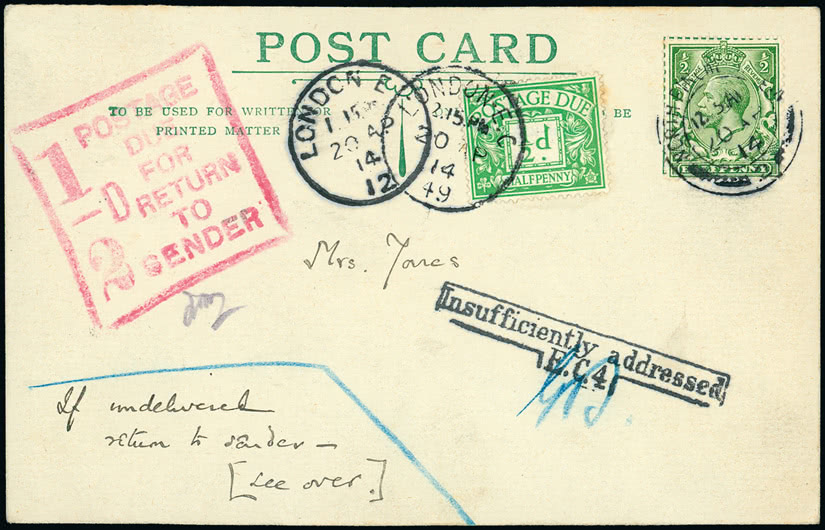 POST CARD
TO BE USED FOR WRITTEN OR
PRINTED MATTER
BE
POSTAGE
DUE
FOR
RETURN
TO
SENDER
1
D
2
LONDON E.C
1.15 PM
20 AP
14
12
LONDON E.C
2.15 PM
AP
14
49
POSTAGE DUE
½d.
HALFPENNY
½ ½
12.15 AM
20
14
Mrs. Jones
Insufficiently addressed
E.C.4.
If undelivered
return to sender —
[see over.]